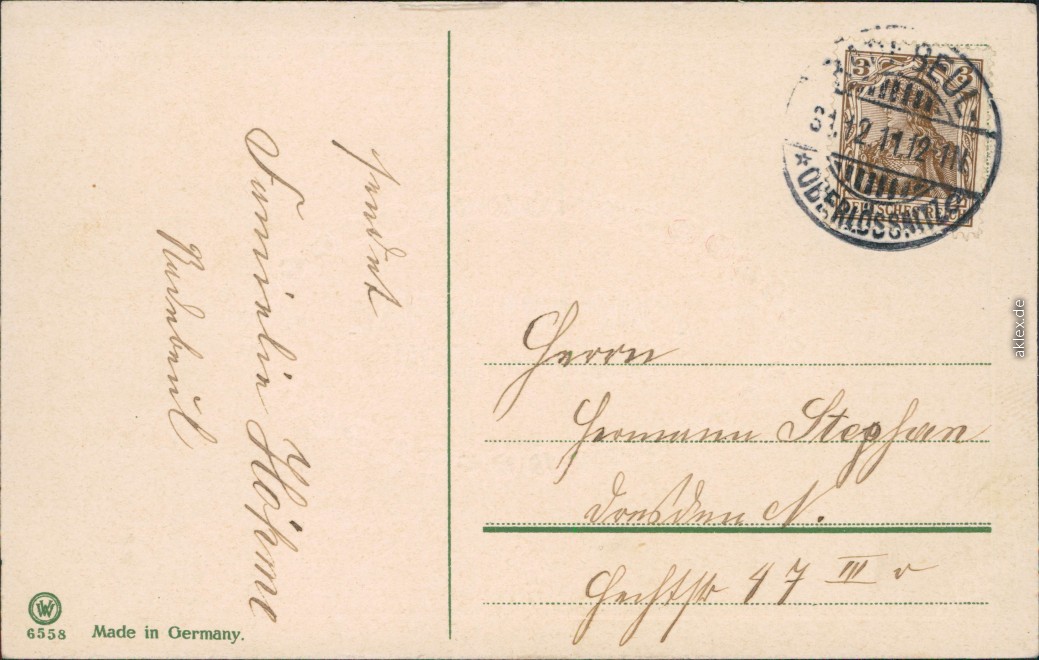 sendet
Familie Höhme
Radebeul
RADEBEUL
31.12.11.12-1N.
*OBERLÖSSNITZ
3 3
DEUTSCHES REICH
Herrn
Hermann Stephan
Dresden N.
Hechtstr 47 III r
6558 Made in Germany.
aklex.de